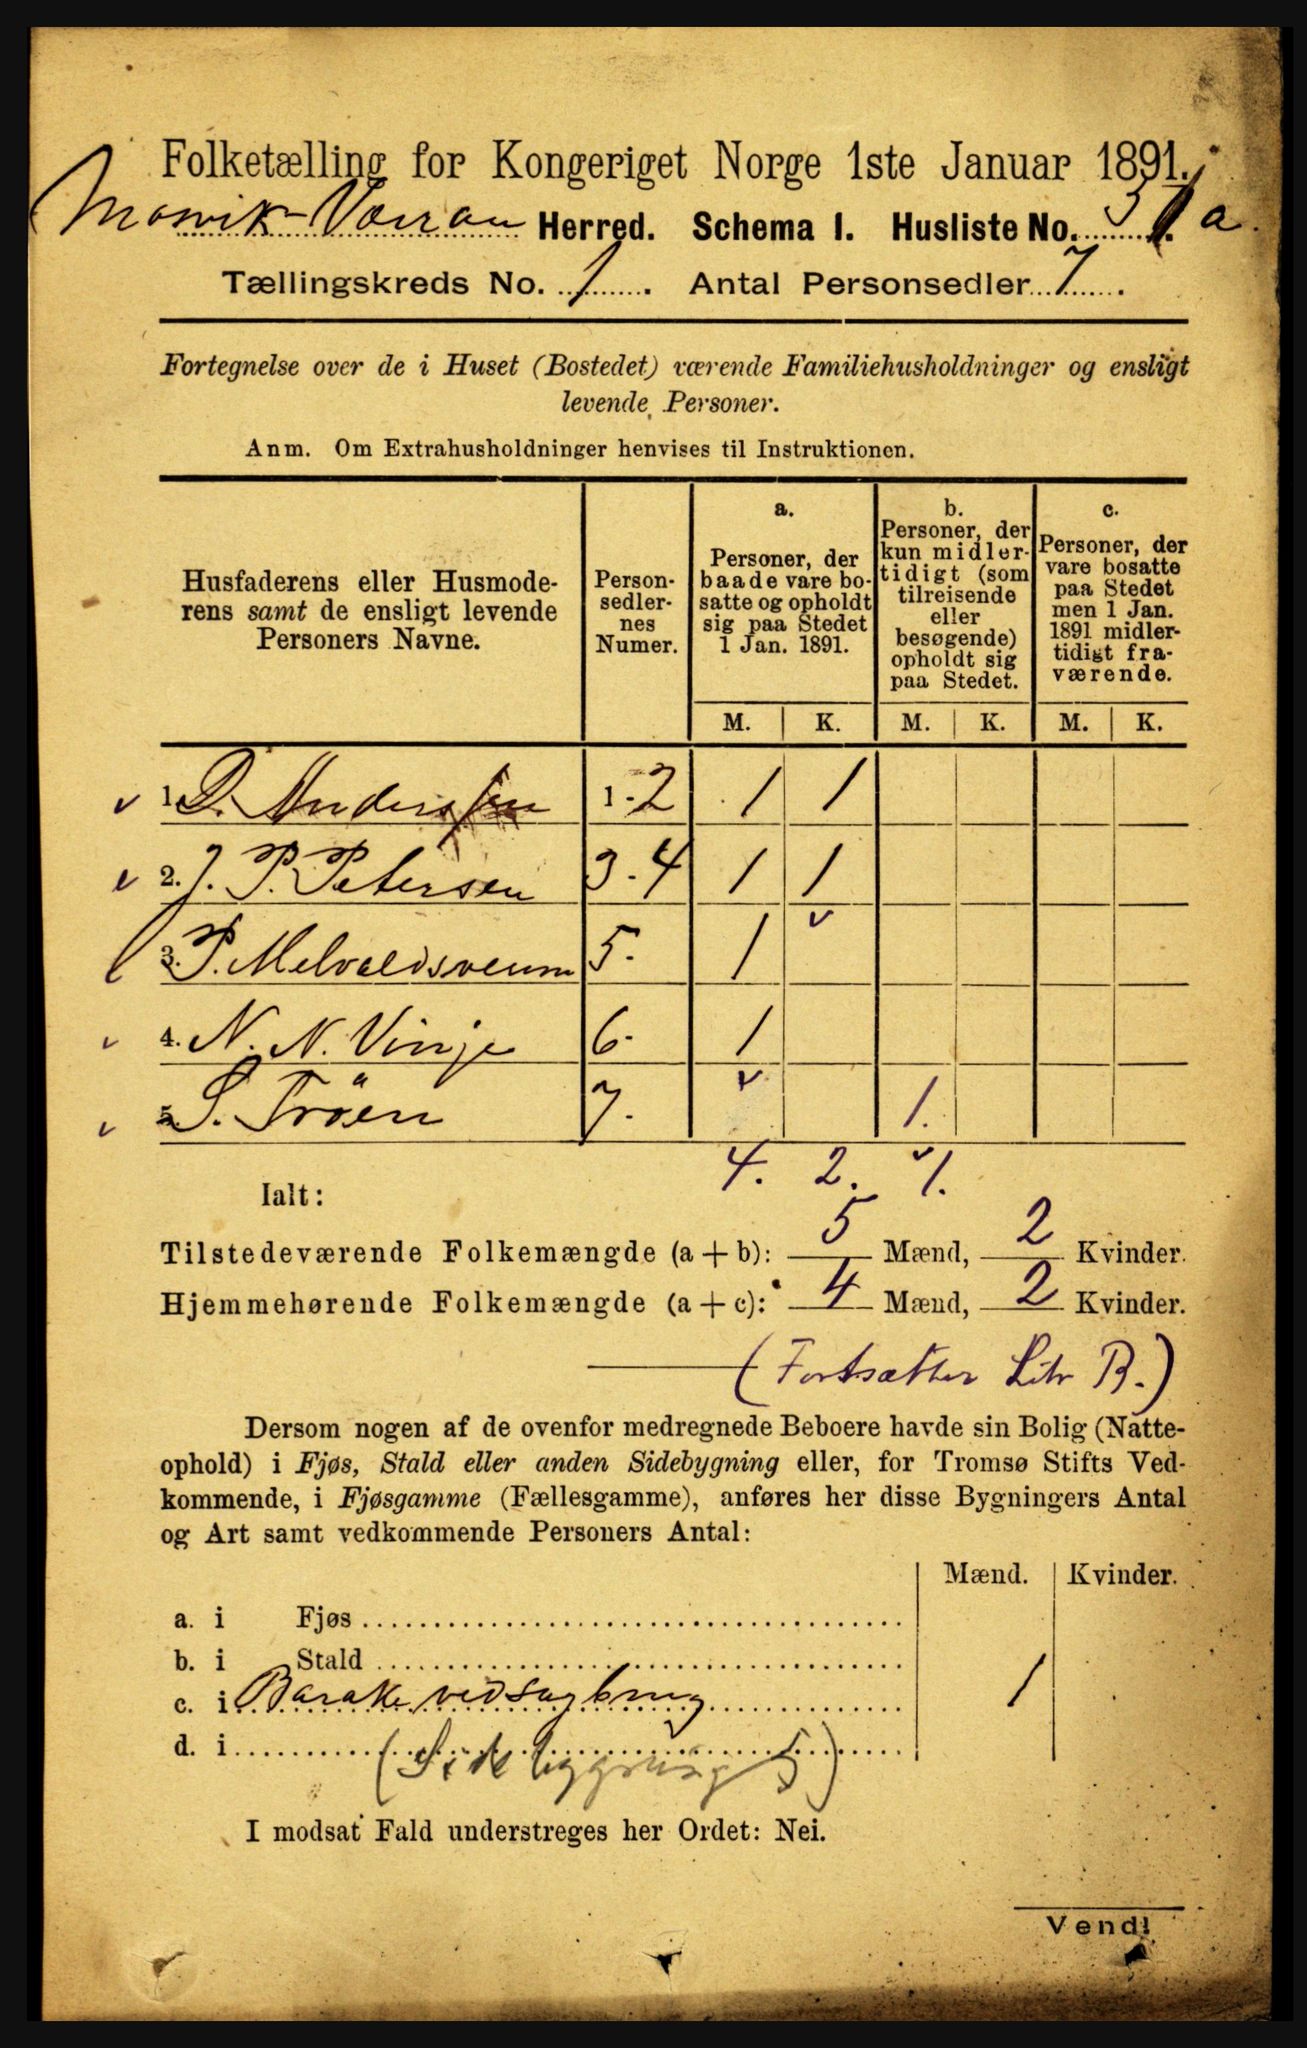 Folketælling for Kongeriget Norge 1ste Januar 1891.
Mosvik-Værran Herred. Schema 1. Husliste No. 31 a.
Tællingskreds No. 1. Antal Personsedler 7.
Fortegnelse over de i Huset (Bostedet) værende Familiehusholdninger og ensligt
levende Personer.
Anm. Om Extrahusholdninger henvises til Instruktionen.
Husfaderens eller Husmode-
rens samt de ensligt levende
Personers Navne.
Person-
sedler-
nes
Numer.
a.
Personer, der
baade vare bo-
satte og opholdt
sig paa Stedet
1 Jan. 1891.
b.
Personer, der
kun midler-
tidigt (som
tilreisende
eller
besøgende)
opholdt sig
paa Stedet.
c.
Personer, der
vare bosatte
paa Stedet
men 1 Jan.
1891 midler-
tidigt fra-
værende.
M. K. M. K. M. K.
1. D. Anderssen 1.2 1 1
2. J. P. Petersen 3.4 1 1
3. P. Melvaldsveum 5. 1
4. N. N. Vinje 6. 1
5. S. Tröen 7. 1.
4. 2. 1.
Ialt:
Tilstedeværende Folkemængde (a + b): 5 Mænd, 2 Kvinder.
Hjemmehørende Folkemængde (a + c): 4 Mænd, 2 Kvinder.
(Fortsætter Litr B.)
Dersom nogen af de ovenfor medregnede Beboere havde sin Bolig (Natte-
ophold) i Fjøs, Stald eller anden Sidebygning eller, for Tromsø Stifts Ved-
kommende, i Fjøsgamme (Fællesgamme), anføres her disse Bygningers Antal
og Art samt vedkommende Personers Antal:
Mænd. Kvinder.
a. i Fjøs
b. i Stald
c. i Barake ved sagbrug 1
d. i
(Sidebygning 5)
I modsat Fald understreges her Ordet: Nei.
Vend!